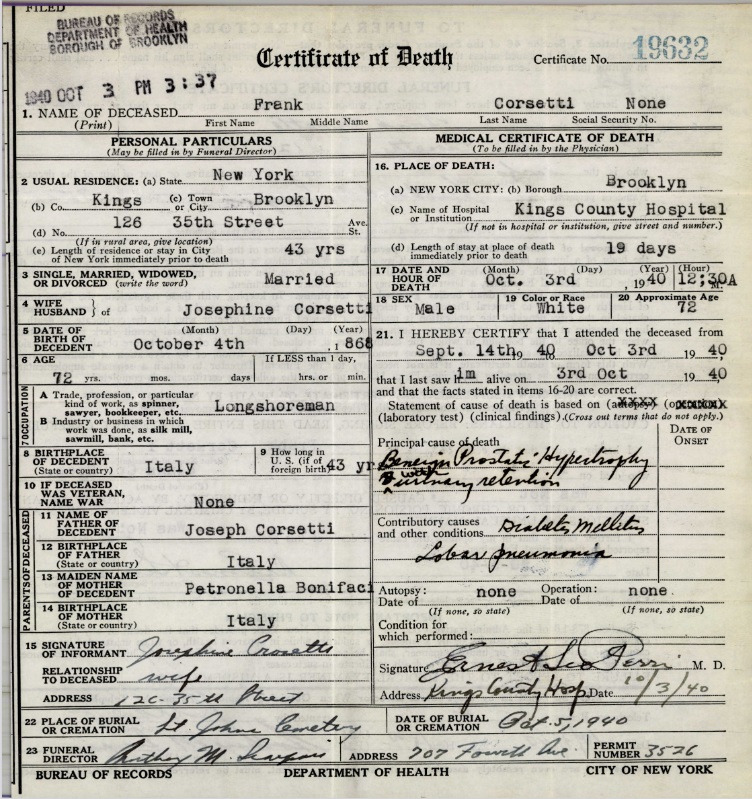 FILED
BUREAU OF RECORDS
DEPARTMENT OF HEALTH
BOROUGH OF BROOKLYN
1940 OCT 3 PM 3:37
Certificate of Death
Certificate No. 19632
1. NAME OF DECEASED Frank Corsetti None
(Print) First Name Middle Name Last Name Social Security No.
PERSONAL PARTICULARS
(May be filled in by Funeral Director)
2 USUAL RESIDENCE: (a) State New York
(b) Co. Kings (c) Town or City Brooklyn
(d) No. 126 35th Street Ave. St.
(If in rural area, give location)
(e) Length of residence or stay in City
of New York immediately prior to death 43 yrs
3 SINGLE, MARRIED, WIDOWED,
OR DIVORCED (write the word) Married
4 WIFE
HUSBAND } of Josephine Corsetti
5 DATE OF (Month) (Day) (Year)
BIRTH OF
DECEDENT October 4th , 1868
6 AGE If LESS than 1 day,
72 yrs. mos. days hrs. or min.
7 OCCUPATION
A Trade, profession, or particular
kind of work, as spinner,
sawyer, bookkeeper, etc. Longshoreman
B Industry or business in which
work was done, as silk mill,
sawmill, bank, etc.
8 BIRTHPLACE
OF DECEDENT Italy
(State or country)
9 How long in
U. S. (if of
foreign birth) 43 yr
10 IF DECEASED
WAS VETERAN,
NAME WAR None
PARENTS OF DECEASED
11 NAME OF
FATHER OF
DECEDENT Joseph Corsetti
12 BIRTHPLACE
OF FATHER
(State or country) Italy
13 MAIDEN NAME
OF MOTHER
OF DECEDENT Petronella Bonifaci
14 BIRTHPLACE
OF MOTHER
(State or country) Italy
15 SIGNATURE
OF INFORMANT Josephine
RELATIONSHIP
TO DECEASED wife
ADDRESS 126-35th Street
MEDICAL CERTIFICATE OF DEATH
(To be filled in by the Physician)
16. PLACE OF DEATH:
(a) NEW YORK CITY: (b) Borough Brooklyn
(c) Name of Hospital
or Institution Kings County Hospital
(If not in hospital or institution, give street and number.)
(d) Length of stay at place of death
immediately prior to death 19 days
17 DATE AND (Month) (Day) (Year) (Hour)
HOUR OF
DEATH Oct. 3rd , 1940 12;30A M.
18 SEX 19 Color or Race 20 Approximate Age
Male White 72
21. I HEREBY CERTIFY that I attended the deceased from
Sept. 14th, 1940 to Oct 3rd 1940
that I last saw him alive on 3rd Oct 1940
and that the facts stated in items 16-20 are correct.
Statement of cause of death is based on (autopsy) (operation)
(laboratory test) (clinical findings). (Cross out terms that do not apply.)
Principal cause of death
DATE OF
ONSET
Benign Prostatic Hypertrophy
with urinary retention
Contributory causes
and other conditions Diabetes Mellitus
Lobar pneumonia
Autopsy: Date of none Operation: Date of none
(If none, so state) (If none, so state)
Condition for
which performed:
Signature Ernest Leo Perri M. D.
Address Kings County Hosp. Date 10/3/40
22 PLACE OF BURIAL
OR CREMATION St Johns Cemetery
DATE OF BURIAL
OR CREMATION Oct. 5, 1940
23 FUNERAL
DIRECTOR M. ADDRESS 707 Fourth Ave. PERMIT NUMBER 3526
BUREAU OF RECORDS DEPARTMENT OF HEALTH CITY OF NEW YORK